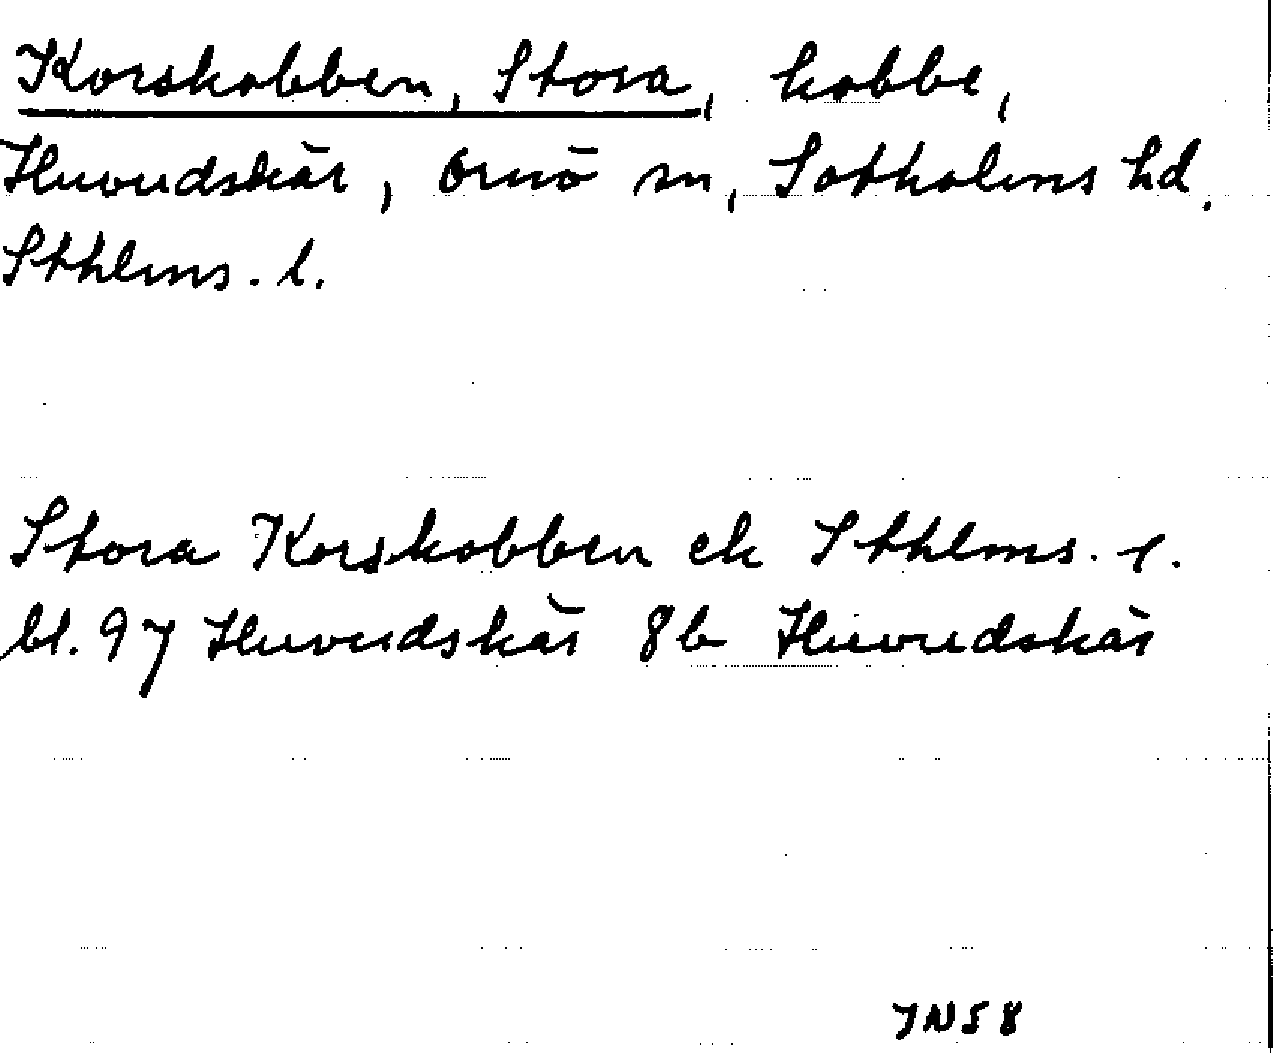 Korskobben, Stora, kobbe,
Huvudskär, Ornö sn, Sotholms hd.
Sthlms. l.
Stora Korskobben ek Sthlms. l.
bl. 97 Huvudskär 8b Huvudskär
JN58